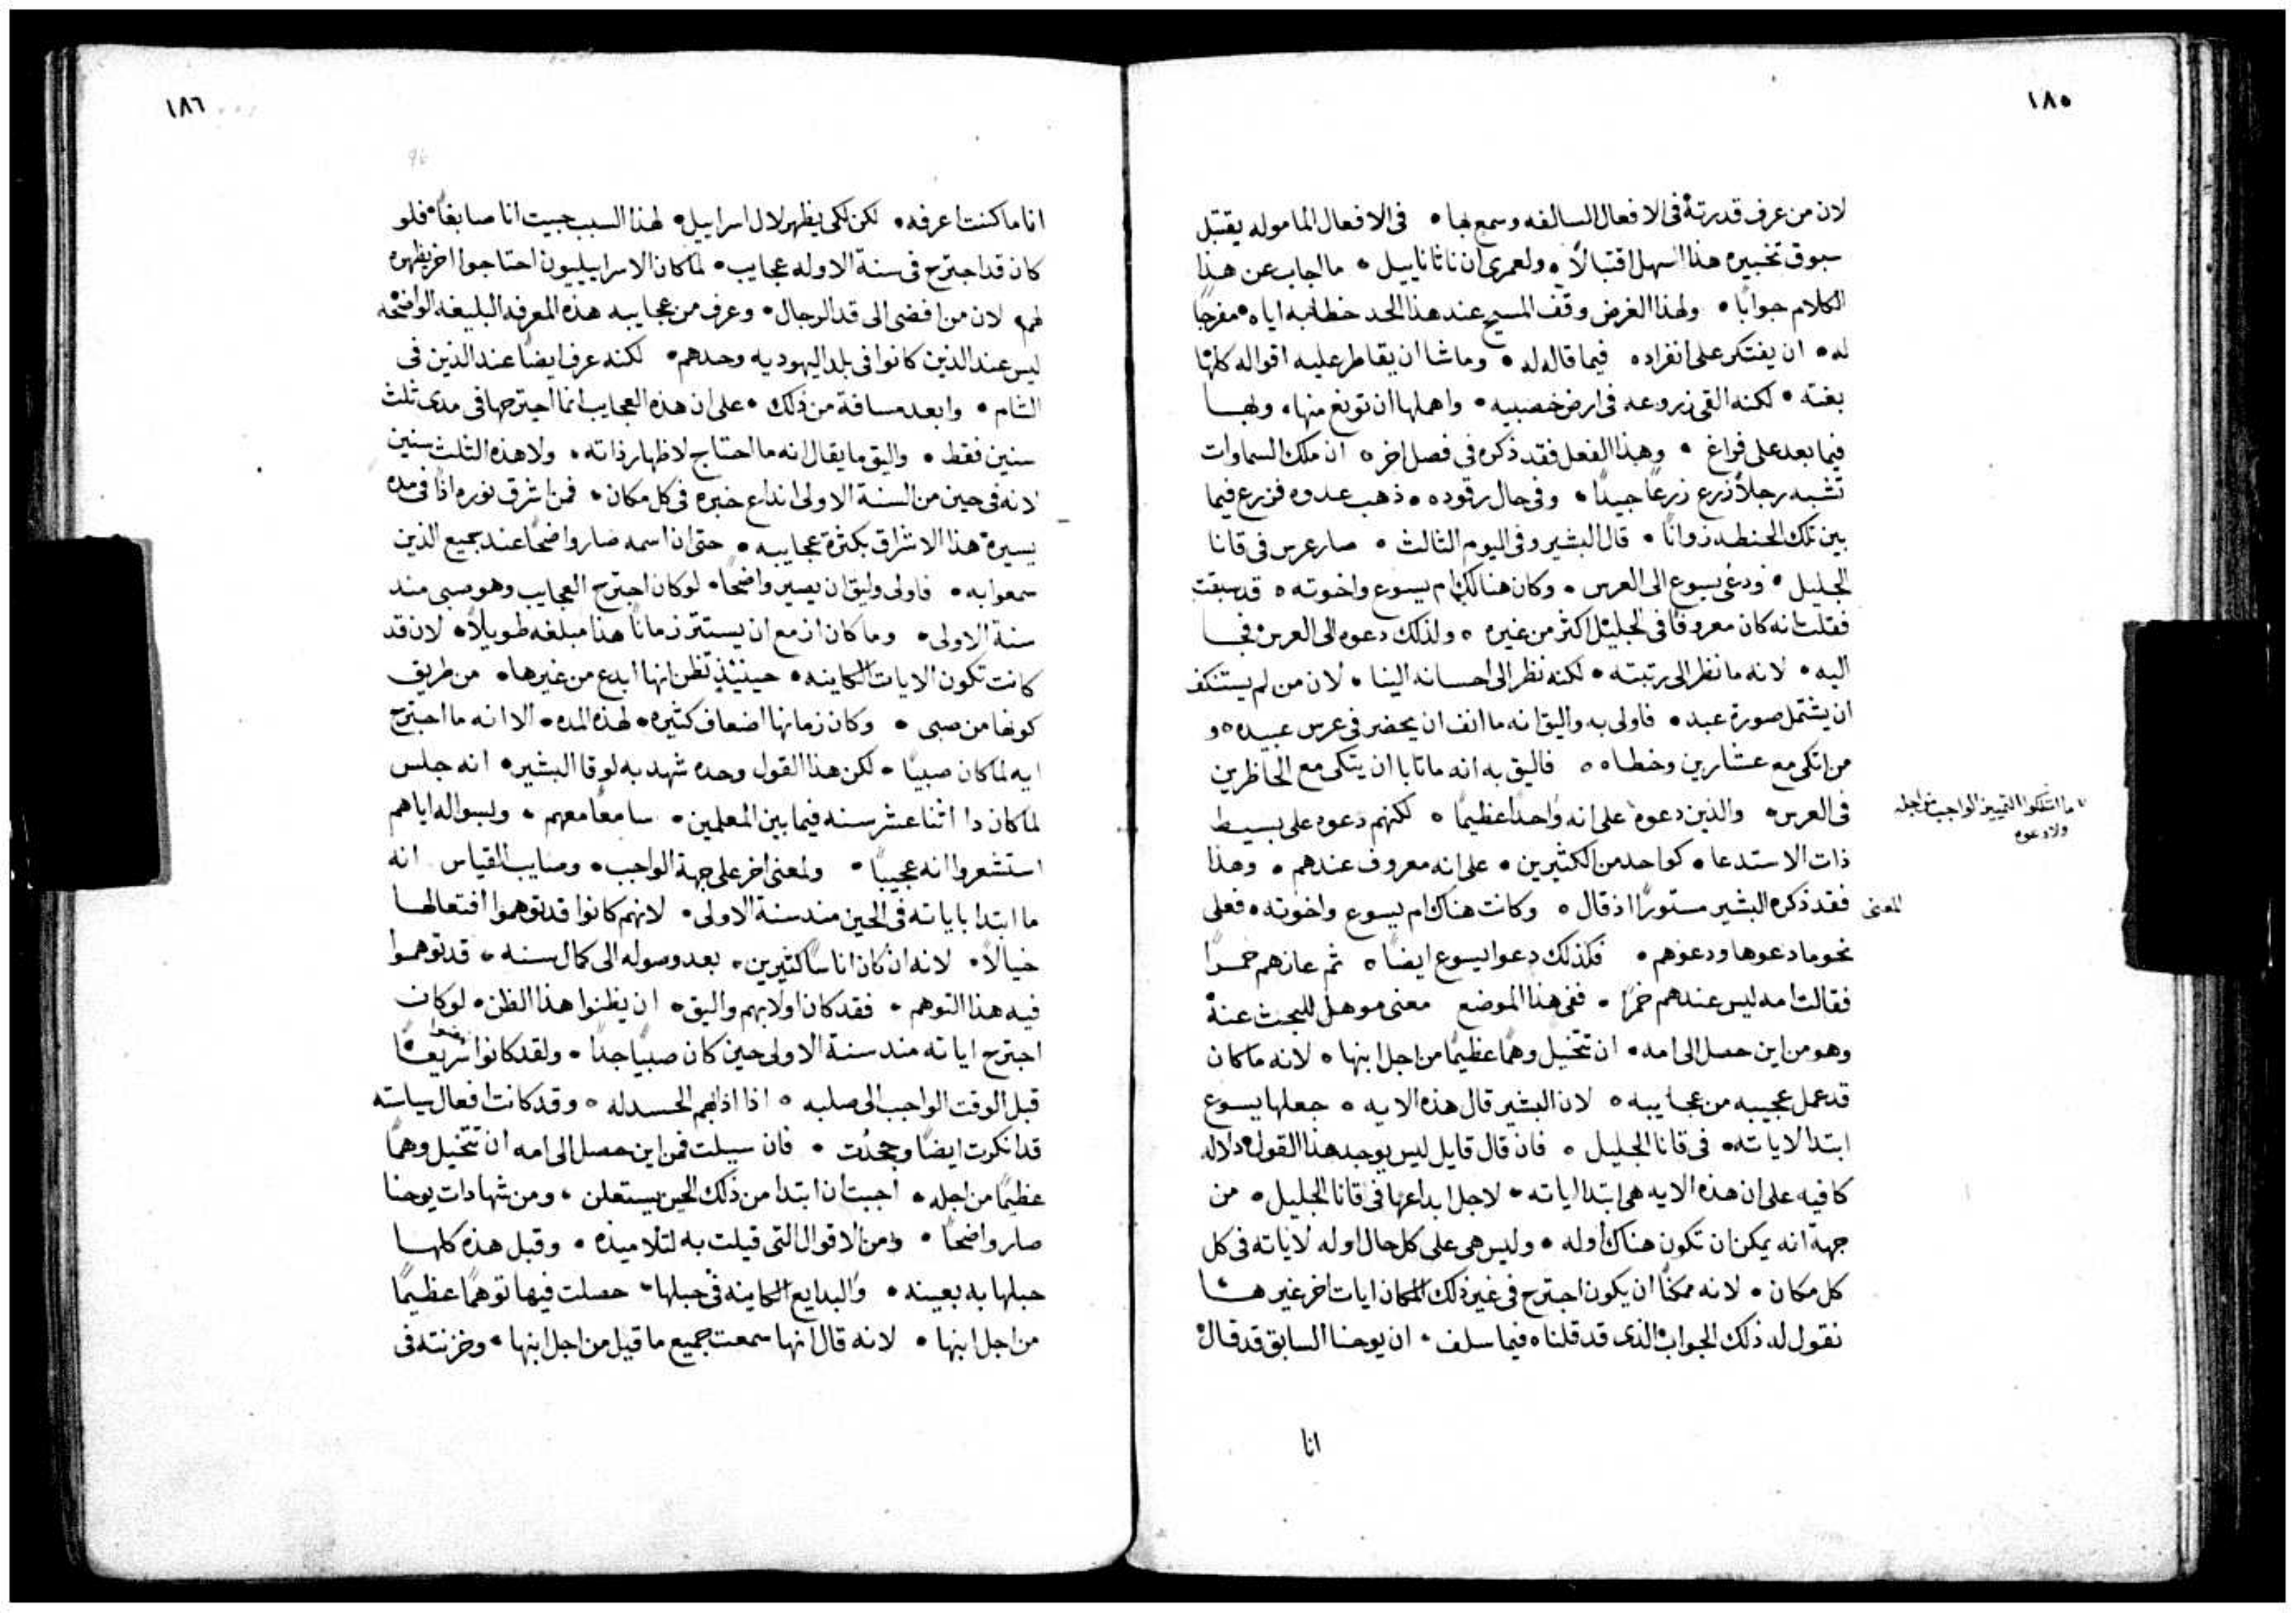 ١٨٥
لان من عرف قدرته في الافعال السالفه وسمع بها • في الافعال الماموله يقتبل
سبوق تخبيره هذا اسهل اقتبالاً • ولعمري ان ناثاناييل • ما اجاب عن هذا
الكلام جواباً • ولهذا الغرض وقف المسيح عند هذا الحد خطابه اياه • مفرجاً
له • ان يفتكر على انفراده فيما قاله له • وما شا ان يقاطر عليه اقواله كلها
بغته • لكنه القي زروعه في ارض خصيبه • واهملها ان تونع منها • ولها
فيما بعد على فراغ • وهذا الفعل فقد ذكره في فصل اخر ٥ ان ملك السماوات
تشبه رجلاً زرع زرعاً جيداً • وفي حال رقوده • ذهب عدوه فزرع فيما
بين تلك الحنطه زواناً • قال البشير وفي اليوم الثالث • صار عرس في قانا
الجليل • ودعي يسوع الى العرس • وكان هنالك ام يسوع واخوته ٥ قد سبقت
فقلت انه كان معروفا في الجليل اكثر من غيره ٥ ولذلك دعوه الى العرس فجا
اليه • لانه ما نظر الى رتبته • لكنه نظر الى احسانه الينا • لان من لم يستنكف
ان يشتمل صورة عبد • فاولى به واليق انه ما انف ان يحضر في عرس عبيده ٥ و
من اتكى مع عشارين وخطاه ٥ فاليق به انه ما تابا ان يتكى مع الحاظرين
في العرس • والذين دعوه على انه واحداً عظيماً ٥ لكنهم دعوه على بسيط
ما امتلكوا التمييز الواجب من اجله
ولا دعوه
ذات الاستدعا • كواحد من الكثيرين • على انه معروف عندهم • وهذا
المعنى
فقد ذكره البشير مستوراً اذ قال ٥ وكانت هناك ام يسوع واخوته • فعلى
نحو ما دعوها ودعوهم • فكذلك دعوا يسوع ايضاً ٥ ثم عازهم خمراً
فقالت امه ليس عندهم خمراً • ففي هذا الموضع معنى موهل للبحث عنه
وهو من اين حصل الى امه • ان تتخيل وهماً عظيماً من اجل ابنها ٥ لانه ما كان
قد عمل عجيبه من عجايبه ٥ لان البشير قال هذه الايه ٥ جعلها يسوع
ابتدا لاياته • في قانا الجليل ٥ فان قال قايل ليس يوجد هذا القول دلاله
كافيه على ان هذه الايه هي ابتدا اياته • لاجل ابداعها في قانا الجليل • من
جهة انه يمكن ان تكون هناك اوله • وليس هي على كل حال اوله لاياته في كل
كل مكان • لانه ممكناً ان يكون اجترح في غير ذلك المكان ايات اخر غير هذا
نقول له ذلك الجواب الذي قد قلناه فيما سلف • ان يوحنا السابق قد قال
انا
١٨٦
انا ما كنت اعرفه • لكن لكي يظهر لال اسراييل • لهذا السبب جيت انا صابغاً • فلو
كان قد اجترح في سنة الاوله عجايب • لما كان الاسراييليون احتاجوا اخر يظهره
لهم • لان من افضى الى قد الرجال • وعرف من عجايبه هذه المعرفه البليغه الواضحه
ليس عند الذين كانوا في بلد اليهوديه وحدهم • لكنه عرف ايضاً عند الذين في
الشام • وابعد مسافة من ذلك • على ان هذه العجايب انما اجترحها في مدى ثلث
سنين فقط • واليق ما يقال انه ما احتاج لاظهار ذاته • ولا هذه الثلث سنين
لانه في حين من السنة الاولى انداع خبره في كل مكان • فمن اشرق نوره اذاً في مده
يسيرة هذا الاشراق بكثرة عجايبه • حتى ان اسمه صار واضحاً عند جميع الذين
سمعوا به • فاولى وليق ان يصير واضحاً • لو كان اجترح العجايب وهو صبي منذ
سنة الاولى • وما كان ازمع ان يستتر زماناً هذا مبلغه طويلاً • لان قد
كانت تكون الايات الكاينه • حينيذ تظن انها ابدع من غيرها • من طريق
كونها من صبي • وكان زمانها اضعاف كثيره • لهذه المده • الا انه ما اجترح
ايه لما كان صبياً • لكن هذا القول وحده شهد به لوقا البشير • انه جلس
لما كان دا اثنا عشر سنه فيما بين المعلمين • سامعاً معهم • ولسواله اياهم
استشعروا انه عجيباً • ولمعنى اخر على جهة الواجب • وصايب القياس انه
ما ابتدا باياته في الحين منذ سنة الاولى • لانهم كانوا قد توهموا افتعالها
خيالاً • لانه ان كان اناساً كثيرين • بعد وصوله الى كمال سنه • قد توهموا
فيه هذا التوهم • فقد كان اولا بهم واليق • ان يظنوا هذا الظن • لو كان
اجترح اياته منذ سنة الاولى حين كان صبياً جداً • ولقد كانوا سريعاً
قبل الوقت الواجب الى صلبه ٥ اذا اذابهم الحسد له ٥ وقد كانت افعال سياسته
قد انكرت ايضاً وجحدت • فان سيلت فمن اين حصل الى امه ان تتخيل وهماً
عظيماً من اجله • اجبت ان ابتدا من ذلك الحين يستعلن • ومن شهادات يوحنا
صار واضحاً • ومن الاقوال التي قيلت به لتلاميذه • وقبل هذه كلها
حبلها به بعينه • والبدايع الكاينه في حبلها • حصلت فيها توهماً عظيماً
من اجل ابنها • لانه قال انها سمعت جميع ما قيل من اجل ابنها • وخزنته في